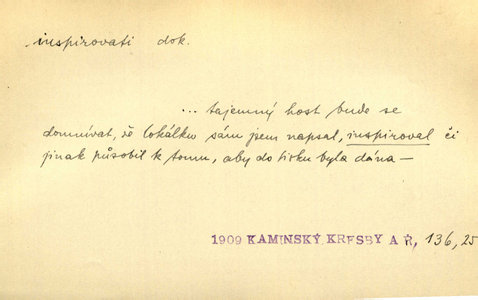 inspirovati dok.
... tajemný host bude se
domnívat, že lokálku sám jsem napsal, inspiroval či
jinak působil k tomu, aby do tisku byla dána —
1909 KAMINSKÝ, KRESBY A Ř, 136, 25